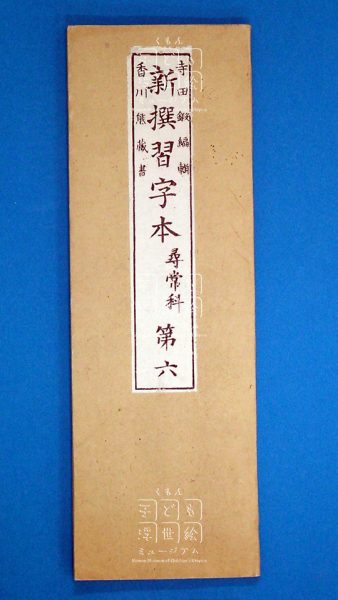 寺田鍛編輯
新撰習字本 尋常科 第六
香川熊蔵書
くもん
子ども
浮世絵
ミュージアム
Kumon Museum of Children's Ukiyo-e